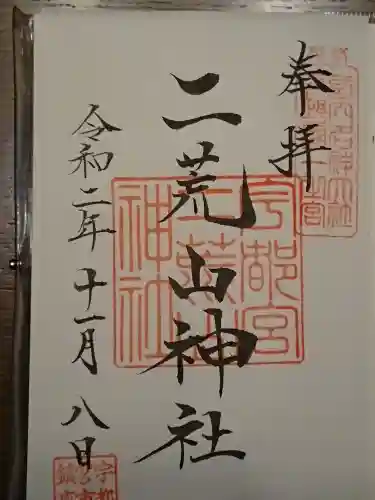 奉拝
二荒山神社
宇都宮
二荒山
神社
令和二年十一月八日